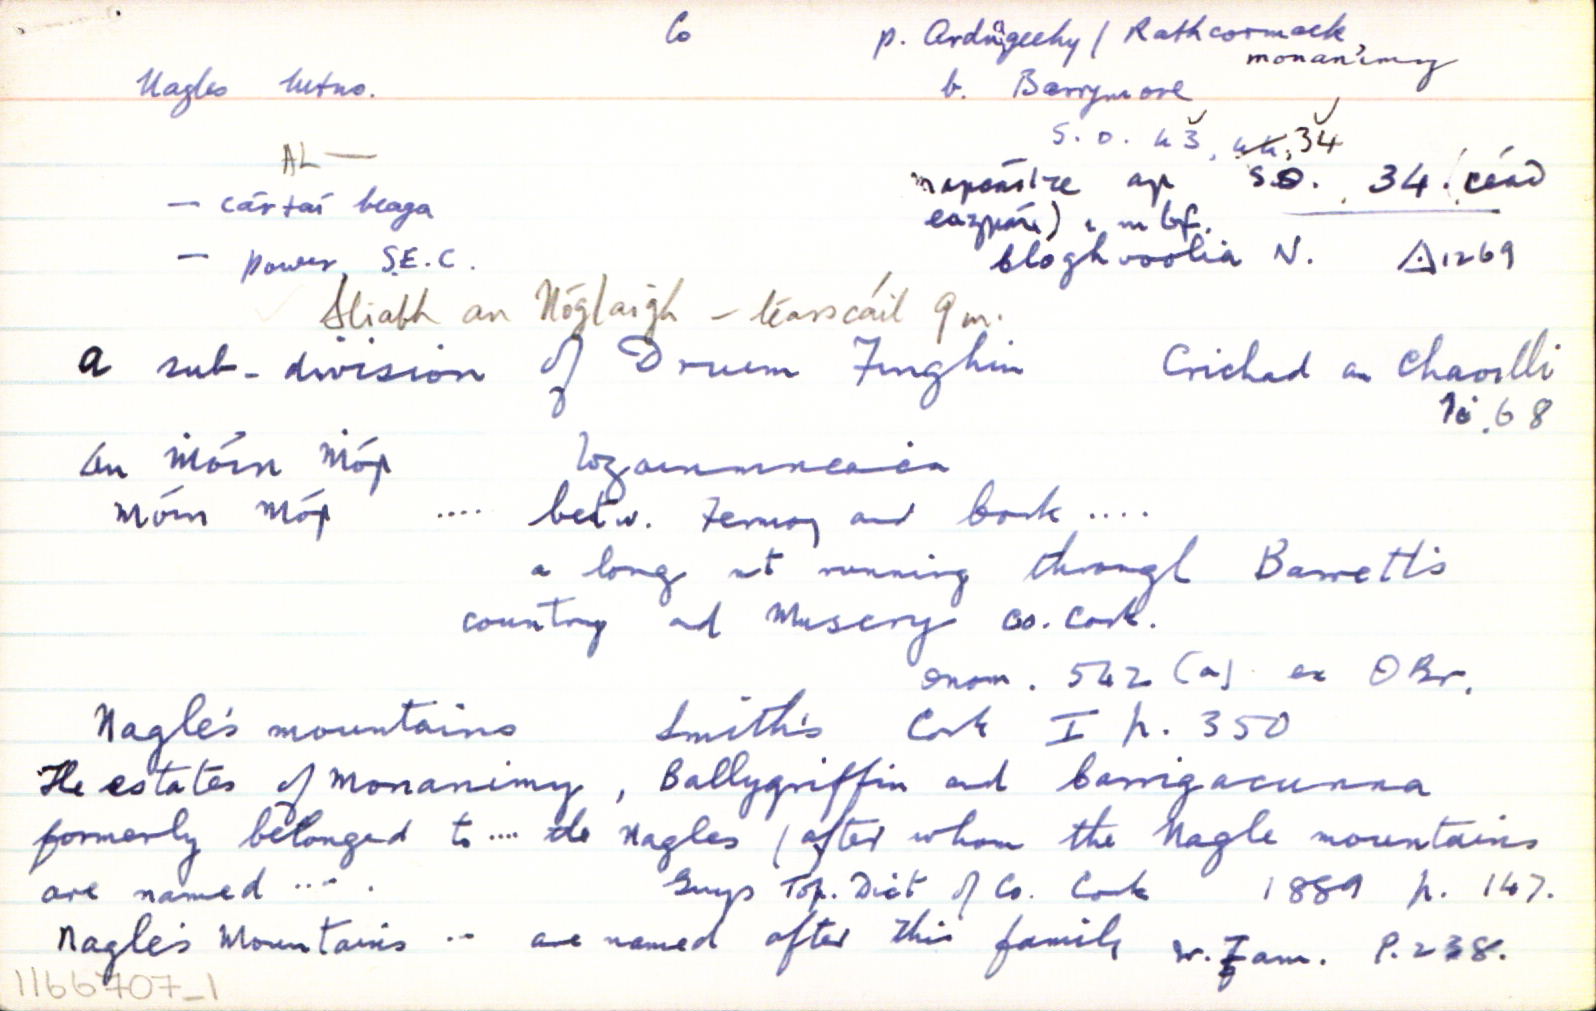 Co
p. Ardnageehy / Rathcormack,
monanimy
Nagles Mtns.
b. Barrymore
S. O. 43, 44, 34
AL —
S.O. 34. (
— cártaí beaga
— Power, S.E.C.
Cloghvoolia N. △1269
Sliabh an Nóglaigh – téarscáil 9 m.
a sub-division of Druim Finghin Crichad an Chaoilli
68
An Ṁóin Ṁór
Móin Mór .... betw. Fermoy and Cork ....
a long mt running through Barrett's
country and Muscry Co. Cork.
Onom. 542 (a) ex OBr.
Nagle's mountains Smith's Cork I p. 350
The estates of Monanimy, Ballygriffin and Carrigacunna
formerly belonged to .... the Nagles (after whom the Nagle mountains
are named .... Guys Top. Dict of Co. Cork 1889 p. 147.
Nagle's Mountains .. are named after this family W. Fam. P. 238.
1166707_1